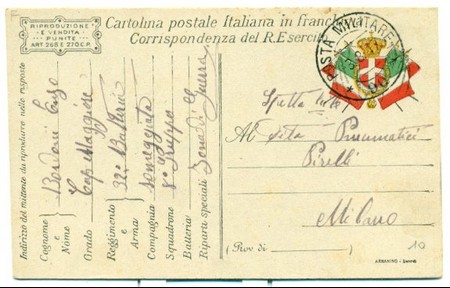 RIPRODUZIONE
E VENDITA
PUNITE
ART. 268 E 270 C.P.
Cartolina postale Italiana in franchigia
Corrispondenza del R. Esercito
POSTA MILITARE
Indirizzo del mittente da riprodurre nelle risposte
Cognome e Nome Bordoni Enzo
Grado Cap. Maggiore
Reggimento e Arma 32ª Batteria
Compagnia someggiata
Squadrone 8º Gruppo
Batteria
Riparti speciali Zona di Guerra
Spetta
Al Pneumatici
Pirelli
Milano
(Prov di )
10